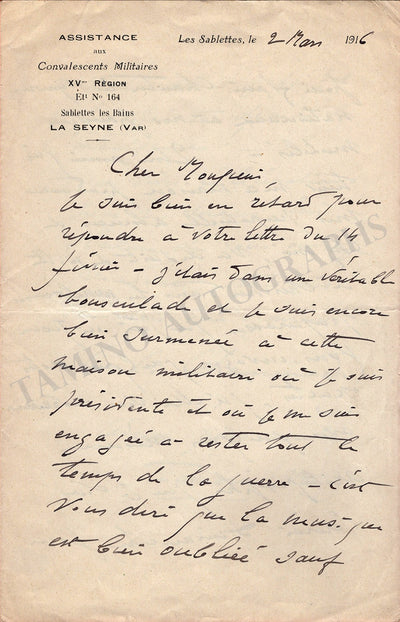 ASSISTANCE
aux
Convalescents Militaires
XVme RÉGION
Ét No 164
Sablettes les Bains
LA SEYNE (VAR)
Les Sablettes, le 2 Mars 1916
Cher Monsieur,
Je suis bien en retard pour
répondre à votre lettre du 14
février – j'étais dans une véritable
bousculade et je suis encore
bien surmenée à cette
maison militaire où je suis
présidente et où je me suis
engagée à rester tout le
temps de la guerre – c'est
vous dire que la musique
est bien oubliée sauf
TAMINO AUTOGRAPHS